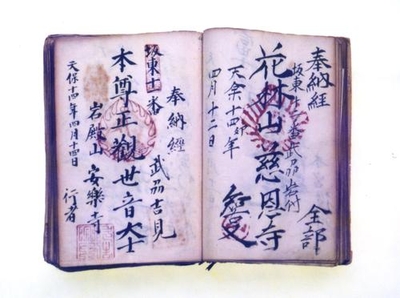 奉納経
全部
武州岩付
花林山慈恩寺
天保十四卯年
四月十二日
奉納經
武州吉見
坂東十一番
本尊正觀世音大士
岩殿山 安樂寺
天保十四年四月十四日 行者